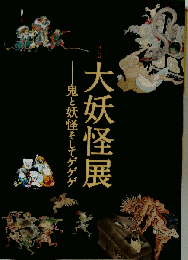 大妖怪展
鬼と妖怪そしてゲゲゲ